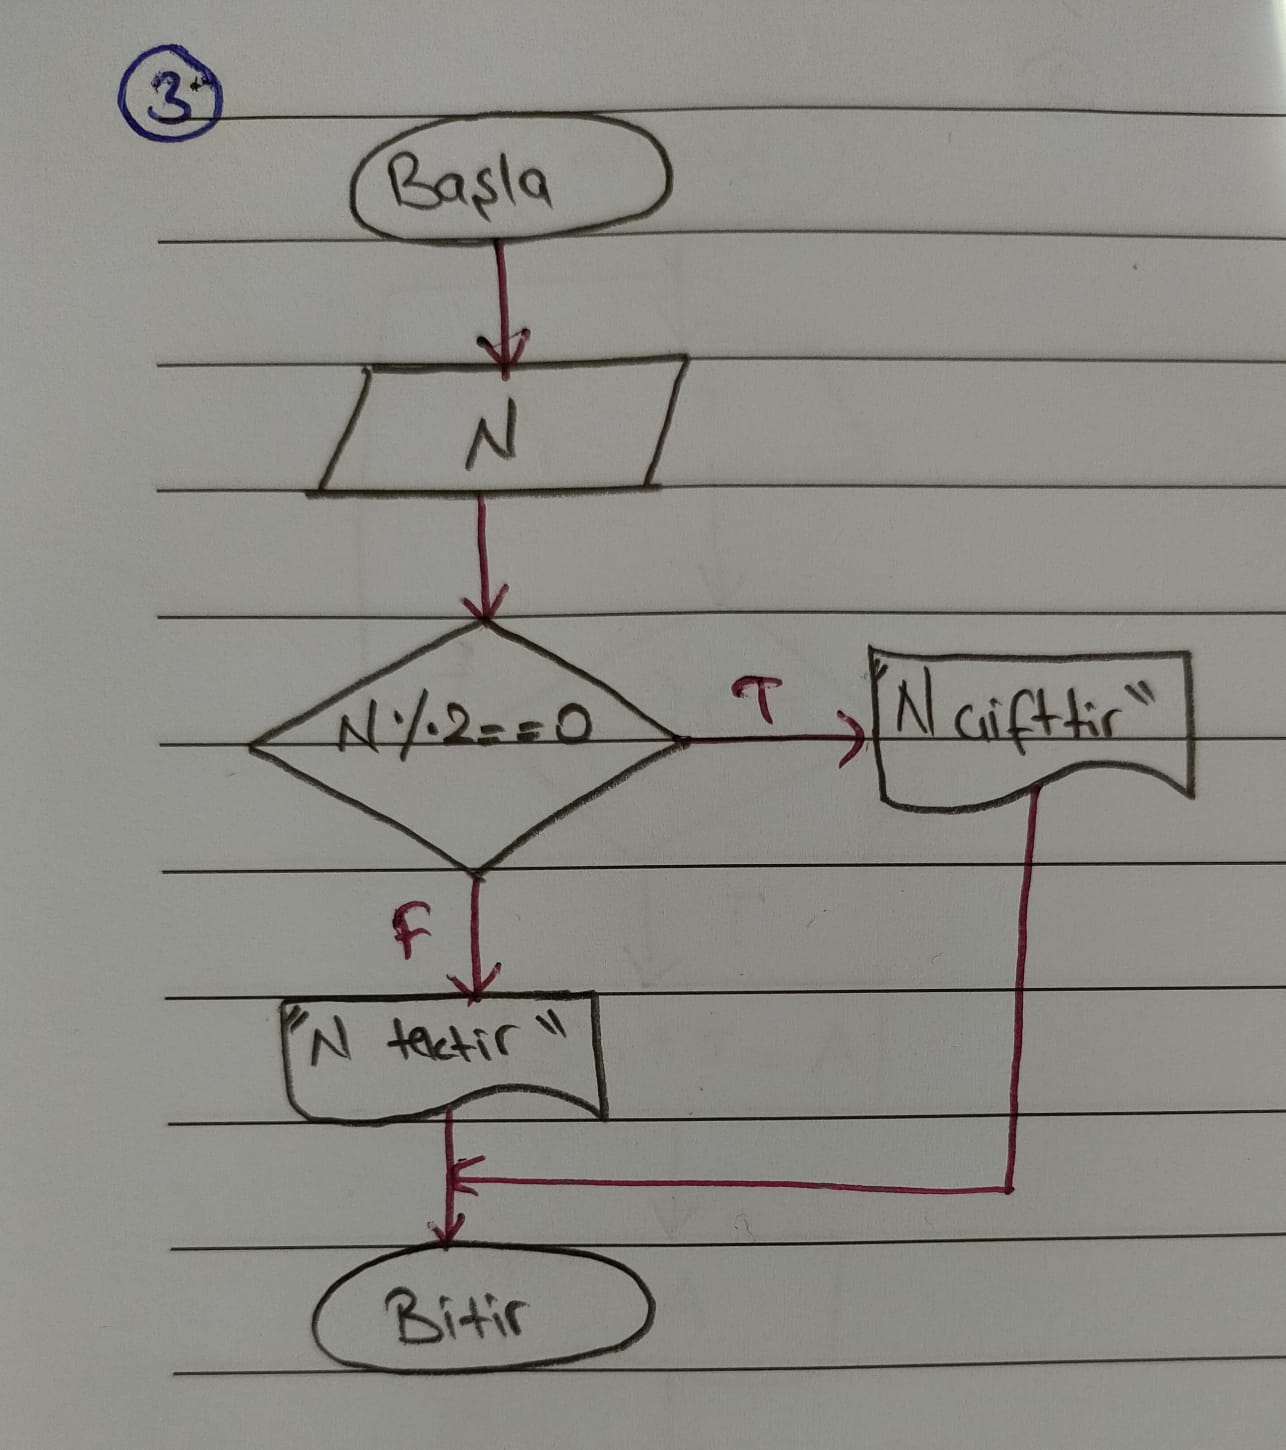 3
Başla
N
N%2==0
T
"N çifttir"
F
"N tektir"
Bitir